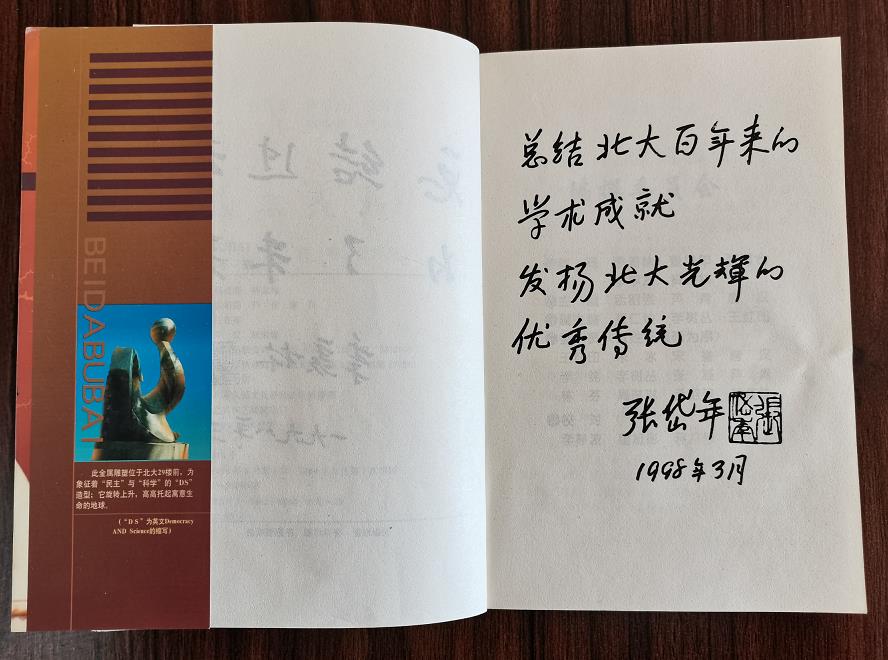 BEIDABUBAI
此金属雕塑位于北大29楼前，为
象征着“民主”与“科学”的“DS”
造型；它旋转上升，高高托起寓意生
命的地球。
（“DS”为英文Democracy
AND Science的缩写）
总结北大百年来的
学术成就
发扬北大光辉的
优秀传统
张岱年
1998年3月